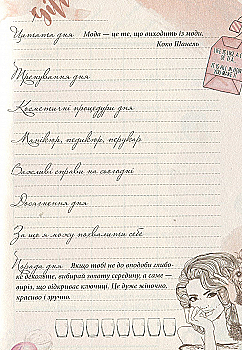 Цитата дня Мода — це те, що виходить із моди.
Коко Шанель
Тренування дня
Косметичні процедури дня
Манікюр, педикюр, перукар
Важливі справи на сьогодні
Досягнення дня
За що я можу похвалити себе
Порада дня Якщо тобі не до вподоби глибо-
ке декольте, вибирай золоту середину, а саме —
виріз, що відкриває ключиці. Це дуже жіночно,
красиво і зручно.